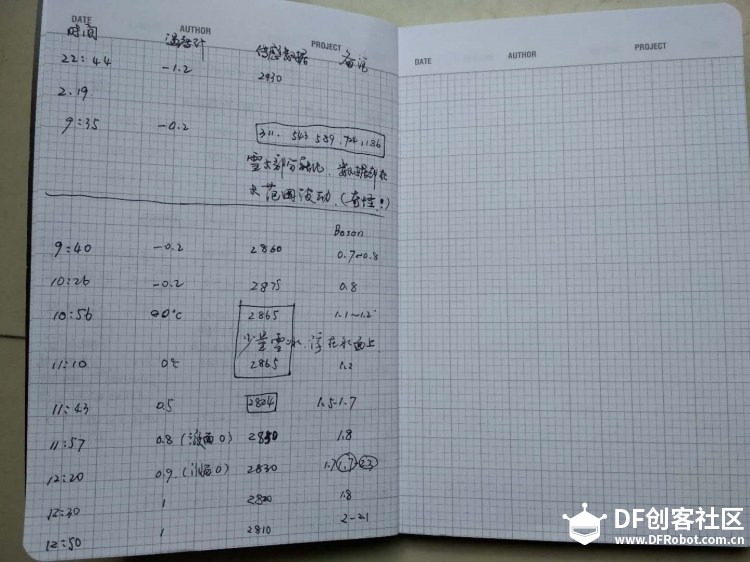 DATE AUTHOR PROJECT
时间 温度计 传感数据 备注
22:44 -1.2 2930
2.19
9:35 -0.2 311. 543 589. 724, 186
雪大部分融化. 数据却在
大范围波动. (奇怪!)
Boson
9:40 -0.2 2860 0.7~0.8
10:26 -0.2 2875 0.8
10:56 0℃ 2865 1.1~1.2
少量雪冰. 浮在水面上
11:10 0℃ 2865 1.2
11:43 0.5 2824 1.5-1.7
11:57 0.8 (液面0) 2850 1.8
12:20 0.9. (液面0) 2830 1.7 1.7-2.3
12:30 1 2820 1.8
12:50 1 2810 2-2.1
DATE AUTHOR PROJECT
DF创客社区
www.DFRobot.com.cn